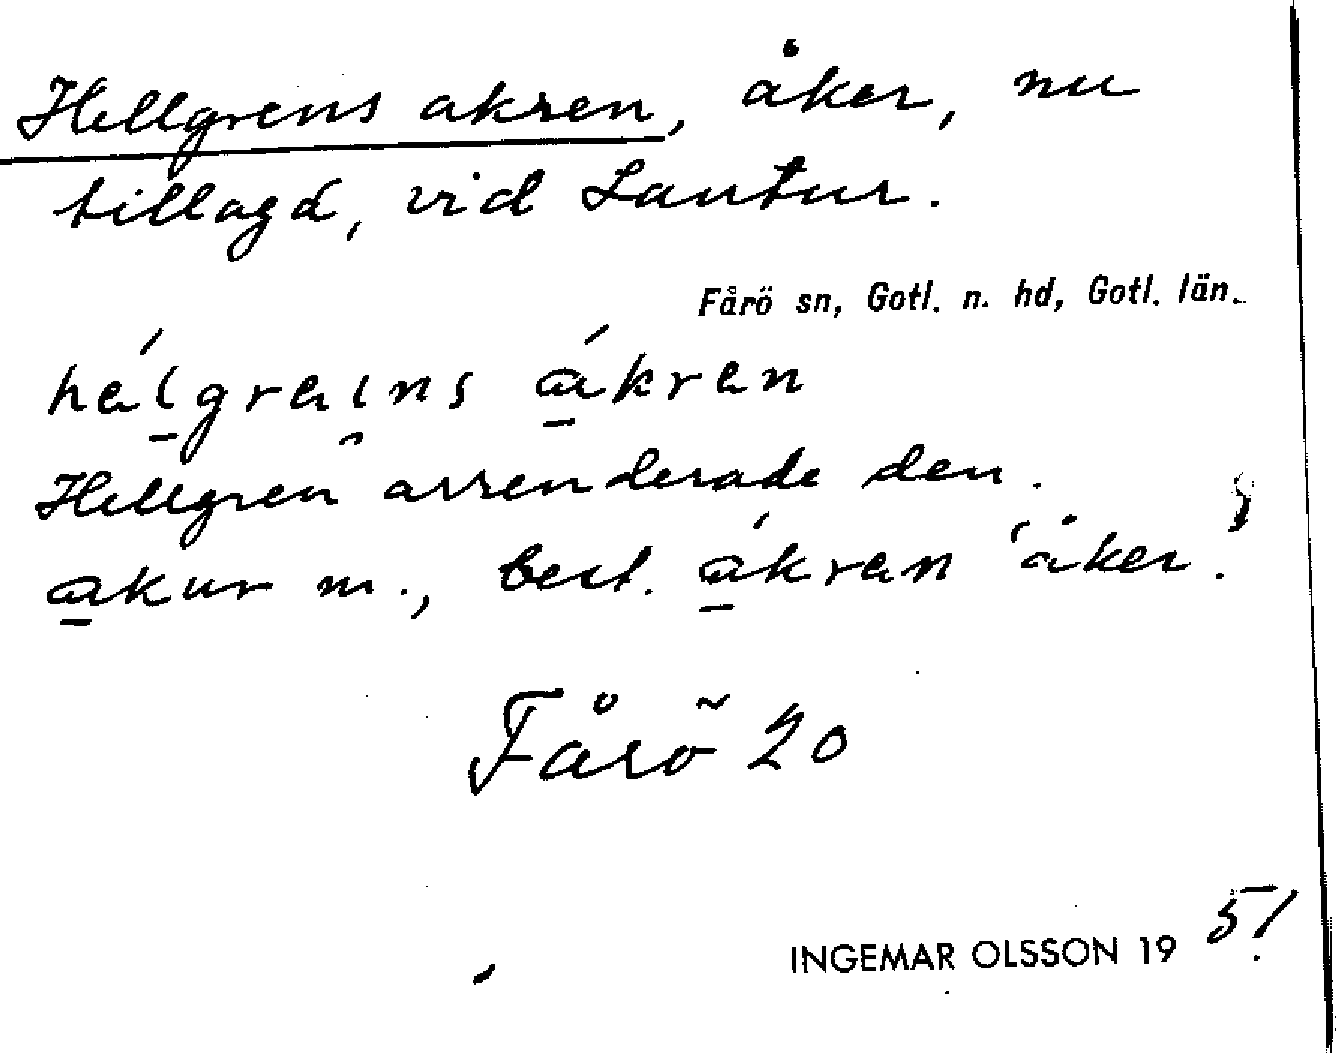 Hellgrens akren, åker, nu
tillagd, vid Lautur.
Fårö sn, Gotl. n. hd, Gotl. län.
hálgrains ákren
Hellgren arrenderade den.
akur m., best. ákran 'åker'.
Fårö 20
INGEMAR OLSSON 1951